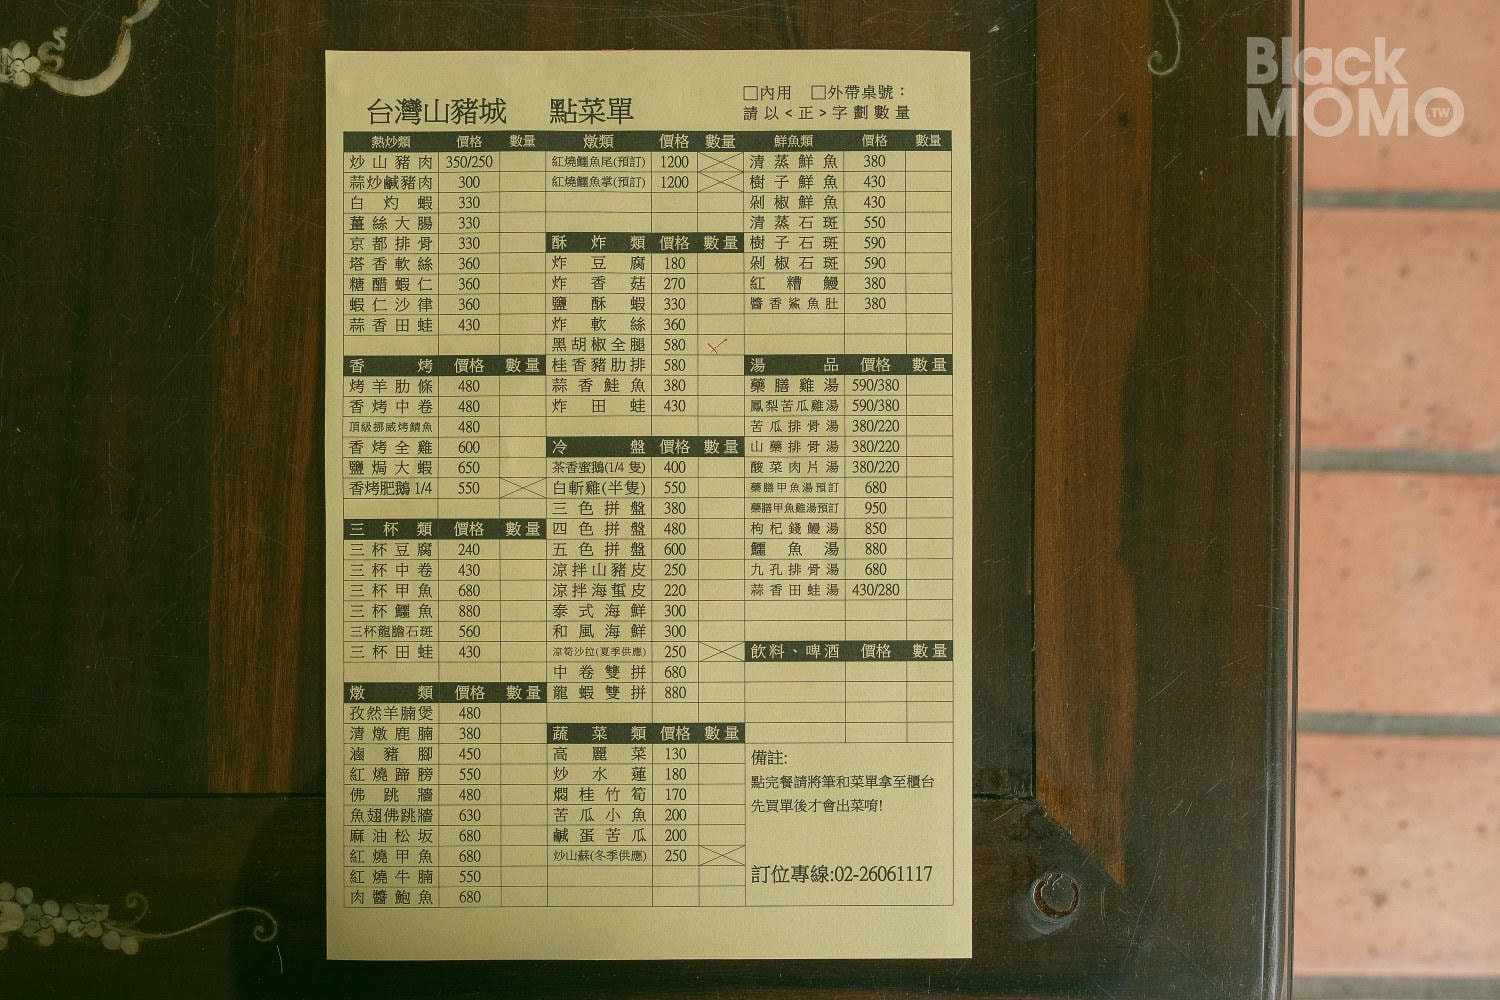 Black
MOMO
.TW
台灣山豬城 點菜單
□內用 □外帶桌號：
請以<正>字劃數量
熱炒類 價格 數量
炒山豬肉 350/250
蒜炒鹹豬肉 300
白灼蝦 330
薑絲大腸 330
京都排骨 330
塔香軟絲 360
糖醋蝦仁 360
蝦仁沙律 360
蒜香田蛙 430
香烤 價格 數量
烤羊肋條 480
香烤中卷 480
頂級挪威烤鯖魚 480
香烤全雞 600
鹽焗大蝦 650
香烤肥鵝 1/4 550
三杯類 價格 數量
三杯豆腐 240
三杯中卷 430
三杯甲魚 680
三杯鱷魚 880
三杯龍膽石斑 560
三杯田蛙 430
燉類 價格 數量
孜然羊腩煲 480
清燉鹿腩 380
滷豬腳 450
紅燒蹄膀 550
佛跳牆 480
魚翅佛跳牆 630
麻油松坂 680
紅燒甲魚 680
紅燒牛腩 550
肉醬鮑魚 680
燉類 價格 數量
紅燒鱷魚尾(預訂) 1200
紅燒鱷魚掌(預訂) 1200
酥炸類 價格 數量
炸豆腐 180
炸香菇 270
鹽酥蝦 330
炸軟絲 360
黑胡椒全腿 580
桂香豬肋排 580
蒜香鮭魚 380
炸田蛙 430
冷盤 價格 數量
茶香蜜鵝(1/4 隻) 400
白斬雞(半隻) 550
三色拼盤 380
四色拼盤 480
五色拼盤 600
涼拌山豬皮 250
涼拌海蜇皮 220
泰式海鮮 300
和風海鮮 300
涼筍沙拉(夏季供應) 250
中卷雙拼 680
龍蝦雙拼 880
蔬菜類 價格 數量
高麗菜 130
炒水蓮 180
燜桂竹筍 170
苦瓜小魚 200
鹹蛋苦瓜 200
炒山蘇(冬季供應) 250
鮮魚類 價格 數量
清蒸鮮魚 380
樹子鮮魚 430
剁椒鮮魚 430
清蒸石斑 550
樹子石斑 590
剁椒石斑 590
紅糟鰻 380
醬香鯊魚肚 380
湯品 價格 數量
藥膳雞湯 590/380
鳳梨苦瓜雞湯 590/380
苦瓜排骨湯 380/220
山藥排骨湯 380/220
酸菜肉片湯 380/220
藥膳甲魚湯預訂 680
藥膳甲魚雞湯預訂 950
枸杞錢鰻湯 850
鱷魚湯 880
九孔排骨湯 680
蒜香田蛙湯 430/280
飲料、啤酒 價格 數量
備註:
點完餐請將筆和菜單拿至櫃台
先買單後才會出菜唷!
訂位專線:02-26061117